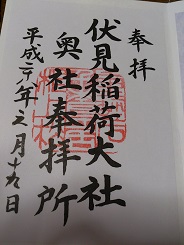 奉拝
伏見稲荷大社
奥社奉拝所
平成二八年三月十九日